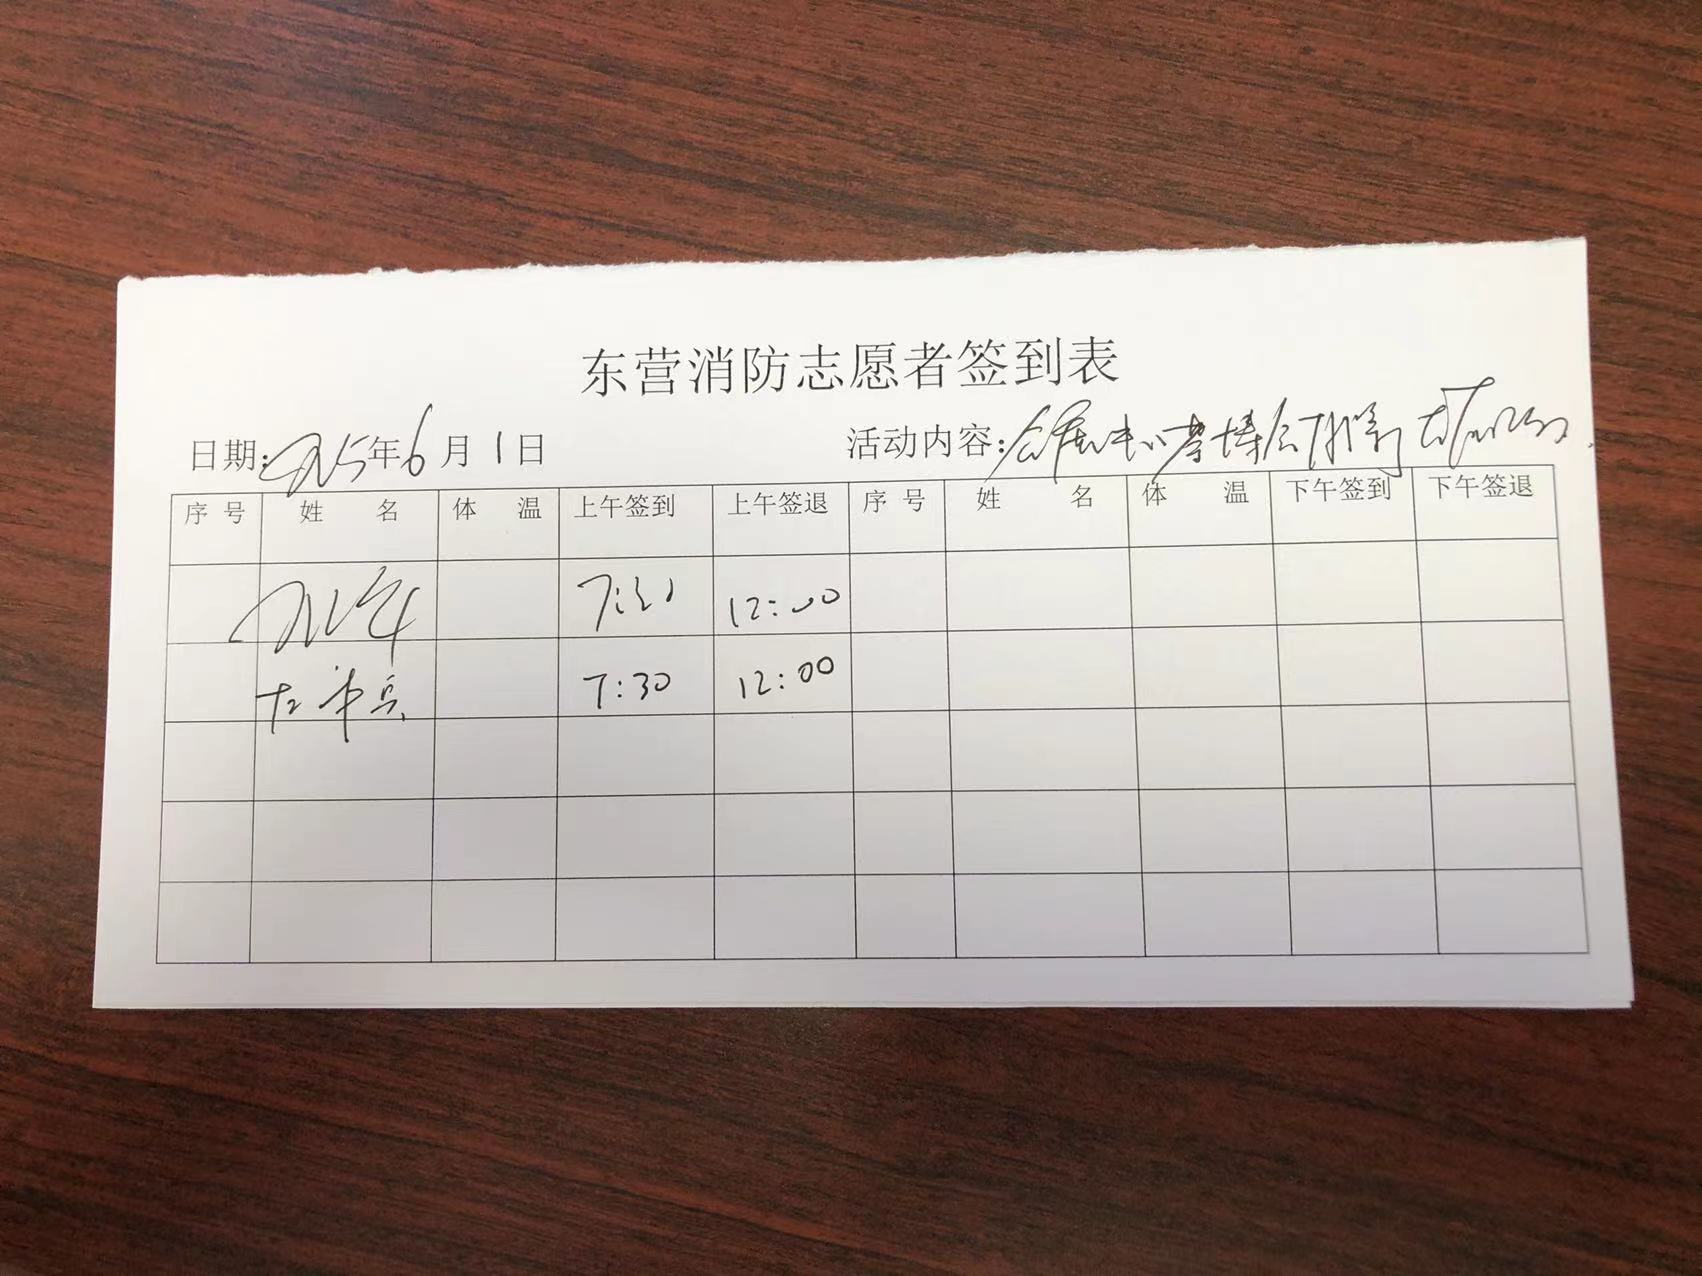 东营消防志愿者签到表
日期:2025年6月1日 活动内容:会展中心
序号 姓 名 体 温 上午签到 上午签退 序号 姓 名 体 温 下午签到 下午签退
7:30 12:00
7:30 12:00